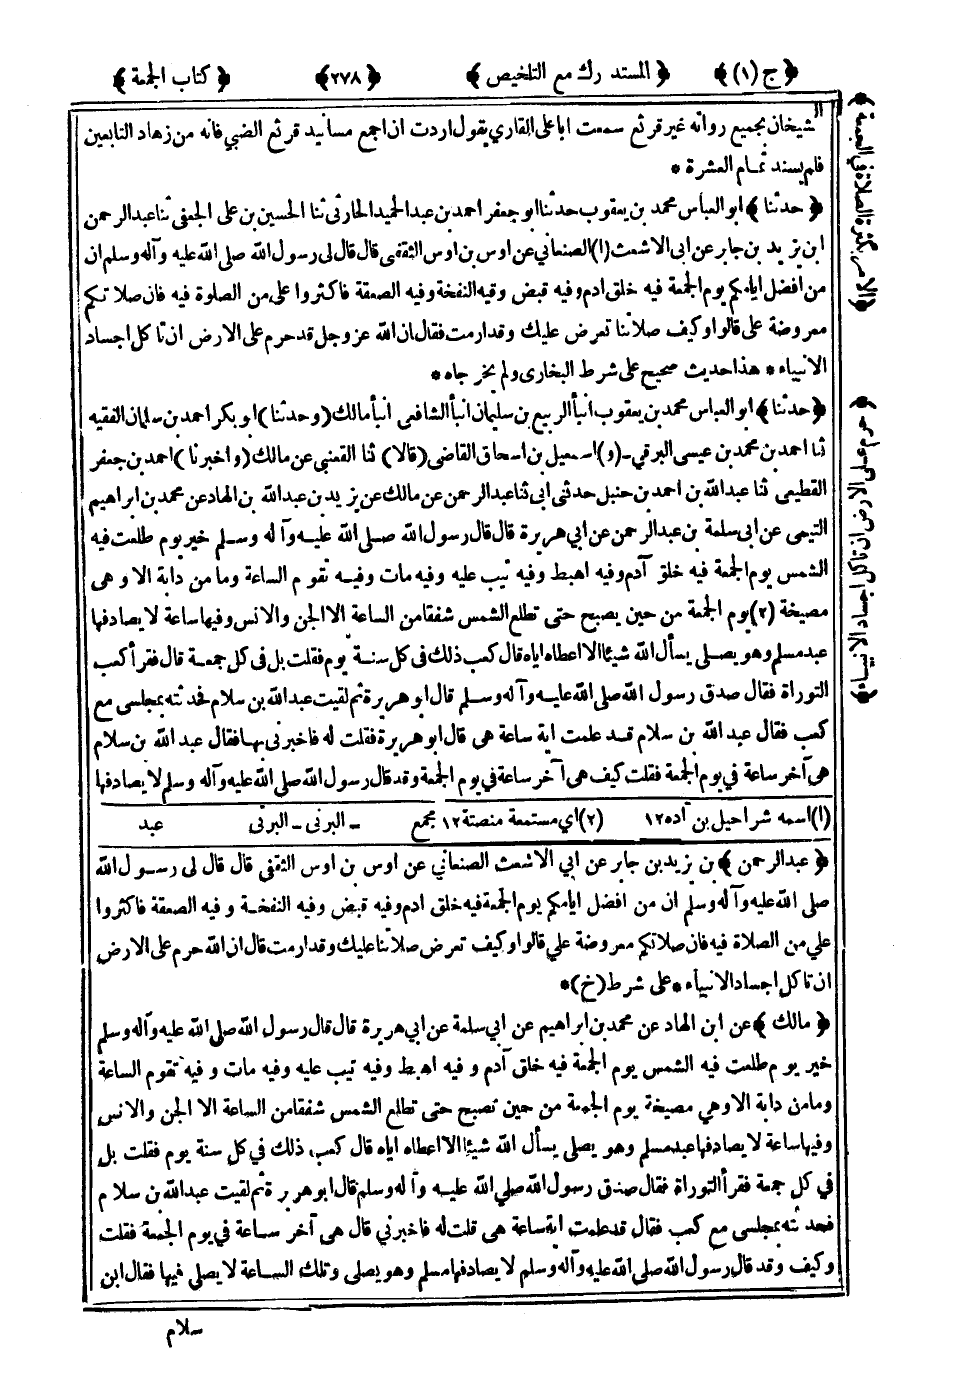 ﴿ ج (١) ﴾ ﴿ المستدرك مع التلخيص ﴾ ﴿ ٢٧٨ ﴾ ﴿ كتاب الجمعة ﴾
الشيخان بجميع رواته غير قرثع سمعت ابا على القاري يقول اردت ان اجمع مسانيد قرثع الضبي فانه من زهاد التابعين
فلم يسند تمام العشرة *
﴿ حدثنا ﴾ ابو العباس محمد بن يعقوب حدثنا ابو جعفر احمد بن عبد الحميد الحارثى ثنا الحسين بن على الجعفى ثنا عبد الرحمن
ابن يزيد بن جابر عن ابى الاشعث (١) الصنعاني عن اوس بن اوس الثقفى قال قال لى رسول الله صلى الله عليه وآله وسلم ان
من افضل ايامكم يوم الجمعة فيه خلق ادم وفيه قبض وفيه النفخة وفيه الصعقة فاكثروا على من الصلوة فيه فان صلاتكم
معروضة على قالوا وكيف صلاتنا تعرض عليك وقد ارمت فقال ان الله عز وجل قد حرم على الارض ان تاكل اجساد
الانبياء * هذا حديث صحيح على شرط البخارى ولم يخرجاه *
﴿ حدثنا ﴾ ابو العباس محمد بن يعقوب انبأ الربيع بن سليمان انبأ الشافعى انبأ مالك (وحدثنا) ابو بكر احمد بن سلمان الفقيه
ثنا احمد بن محمد بن عيسى البرقي ــ (و) اسمعيل بن اسحاق القاضى (قالا) ثنا القعنبى عن مالك (واخبرنا) احمد بن جعفر
القطيعى ثنا عبد الله بن احمد بن حنبل حدثنى ابى ثنا عبد الرحمن عن مالك عن يزيد بن عبد الله بن الهاد عن محمد بن ابراهيم
التيمى عن ابى سلمة بن عبد الرحمن عن أبي هريرة قال قال رسول الله صلى الله عليه وآله وسلم خير يوم طلعت فيه
الشمس يوم الجمعة فيه خلق آدم وفيه اهبط وفيه تيب عليه وفيه مات وفيه تقوم الساعة وما من دابة الا وهى
مصيخة (٢) يوم الجمعة من حين يصبح حتى تطلع الشمس شفقا من الساعة الا الجن والانس وفيها ساعة لا يصادفها
عبد مسلم وهو يصلى يسأل الله شيئا الا اعطاه اياه قال كعب ذلك فى كل سنة يوم فقلت بل فى كل جمعة قال فقرأ كعب
التوراة فقال صدق رسول الله صلى الله عليه وآله وسلم قال ابو هريرة ثم لقيت عبد الله بن سلام فحدثته بمجلسى مع
كعب فقال عبد الله بن سلام قد علمت اية ساعة هى قال ابو هريرة فقلت له فاخبرنى بها فقال عبد الله بن سلام
هى آخر ساعة في يوم الجمعة فقلت كيف هى آخر ساعة في يوم الجمعة وقد قال رسول الله صلى الله عليه وآله وسلم لا يصادفها
(١) اسمه شراحيل بن آده ١٢ (٢) اي مستمعة منصتة ١٢ مجمع ــ البرنى ــ البرتى عبد
﴿ عبد الرحمن ﴾ بن يزيد بن جابر عن ابي الاشعث الصنعاني عن اوس بن اوس الثقفى قال قال لى رسول الله
صلى الله عليه وآله وسلم ان من افضل ايامكم يوم الجمعة فيه خلق ادم وفيه قبض وفيه النفخة وفيه الصعقة فاكثروا
علي من الصلاة فيه فان صلاتكم معروضة علي قالوا وكيف تعرض صلاتنا عليك وقد ارمت قال ان الله حرم على الارض
ان تاكل اجساد الانبياء * على شرط (خ) *
﴿ مالك ﴾ عن ابن الهاد عن محمد بن ابراهيم عن ابي سلمة عن ابي هريرة قال قال رسول الله صلى الله عليه وآله وسلم
خير يوم طلعت فيه الشمس يوم الجمعة فيه خلق آدم وفيه اهبط وفيه تيب عليه وفيه مات وفيه تقوم الساعة
وما من دابة الا وهي مصيخة يوم الجمعة من حين تصبح حتى تطلع الشمس شفقا من الساعة الا الجن والانس
وفيها ساعة لا يصادفها عبد مسلم وهو يصلى يسأل الله شيئا الا اعطاه اياه قال كعب ذلك في كل سنة يوم فقلت بل
في كل جمعة فقرأ التوراة فقال صدق رسول الله صلى الله عليه وآله وسلم قال ابو هريرة ثم لقيت عبد الله بن سلام
فحدثته بمجلسى مع كعب فقال قد علمت اية ساعة هى قلت له فاخبرني قال هى آخر ساعة في يوم الجمعة فقلت
وكيف وقد قال رسول الله صلى الله عليه وآله وسلم لا يصادفها مسلم وهو يصلى وتلك الساعة لا يصلى فيها فقال ابن
سلام
﴿ الامر بكثرة الصلاة في الجمعة ﴾
﴿ حرم على الارض ان تاكل اجساد الانبياء ﴾